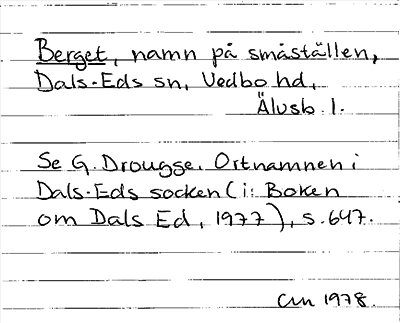 Berget, namn på småställen,
Dals-Eds sn, Vedbo hd,
Älvsb. l.
Se G. Drougge. Ortnamnen i
Dals-Eds socken (i: Boken
om Dals Ed, 1977), s. 647.
1978.